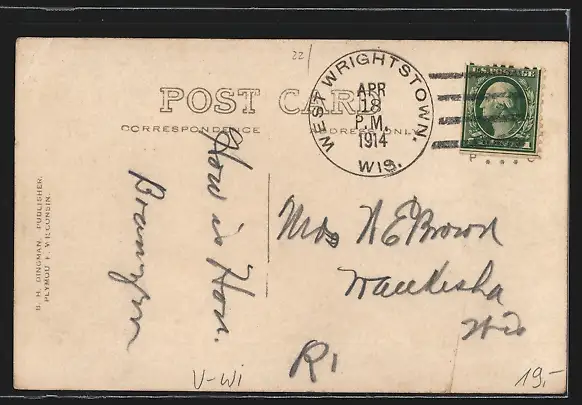 22
POST CARD
CORRESPONDENCE
ADDRESS ONLY
WEST WRIGHTSTOWN,
APR
18
P.M.
1914
WIS.
1
How is Hon.
Mrs N E Brown
Waukesha
Wis
R1
B. H. DINGMAN, PUBLISHER.
PLYMOUTH, WISCONSIN.
V-Wi
19,-